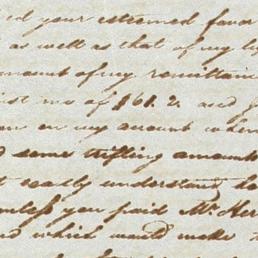 ed your esteemed favor
as well as that of my
amount of my remittan
ist ms of $61.2. and
on my account when
d some trifling amount
t really understand ho
unless you paid Mr Her
d which would make t